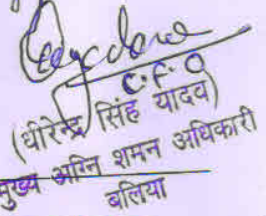 C.F.O
(धीरेन्द्र सिंह यादव)
मुख्य अग्नि शमन अधिकारी
बलिया